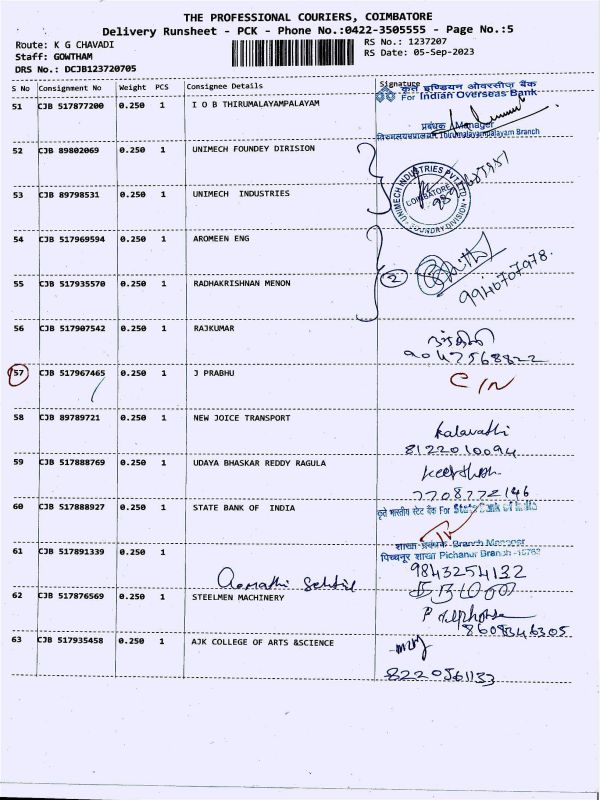 THE PROFESSIONAL COURIERS, COIMBATORE
Delivery Runsheet - PCK - Phone No.:0422-3505555 - Page No.:5
Route: K G CHAVADI
RS No.: 1237207
Staff: GOWTHAM
RS Date: 05-Sep-2023
DRS No.: DCJB123720705
S No Consignment No Weight PCS Consignee Details Signature
कृते इण्डियन ओवरसीज़ बैंक
For Indian Overseas Bank
51 CJB 517877200 0.250 1 I O B THIRUMALAYAMPALAYAM
प्रबंधक / Manager
Thirumalayampalayam Branch
52 CJB 89802069 0.250 1 UNIMECH FOUNDEY DIRISION
UNIMECH INDUSTRIES PVT LTD
COIMBATORE
FOUNDRY DIVISION
53 CJB 89798531 0.250 1 UNIMECH INDUSTRIES
54 CJB 517969594 0.250 1 AROMEEN ENG
2
9940707978.
55 CJB 517935570 0.250 1 RADHAKRISHNAN MENON
56 CJB 517907542 0.250 1 RAJKUMAR
9047568822
57 CJB 517967465 0.250 1 J PRABHU
C/N
58 CJB 89789721 0.250 1 NEW JOICE TRANSPORT
kalavathi
8122010094
59 CJB 517888769 0.250 1 UDAYA BHASKAR REDDY RAGULA
7708772146
60 CJB 517888927 0.250 1 STATE BANK OF INDIA
कृते भारतीय स्टेट बैंक For State Bank of India
शाखा प्रबंधक Branch Manager
61 CJB 517891339 0.250 1
Pichanur Branch
9843254132
62 CJB 517876569 0.250 1 STEELMEN MACHINERY
8608346305
63 CJB 517935458 0.250 1 AJK COLLEGE OF ARTS &SCIENCE
8220561133